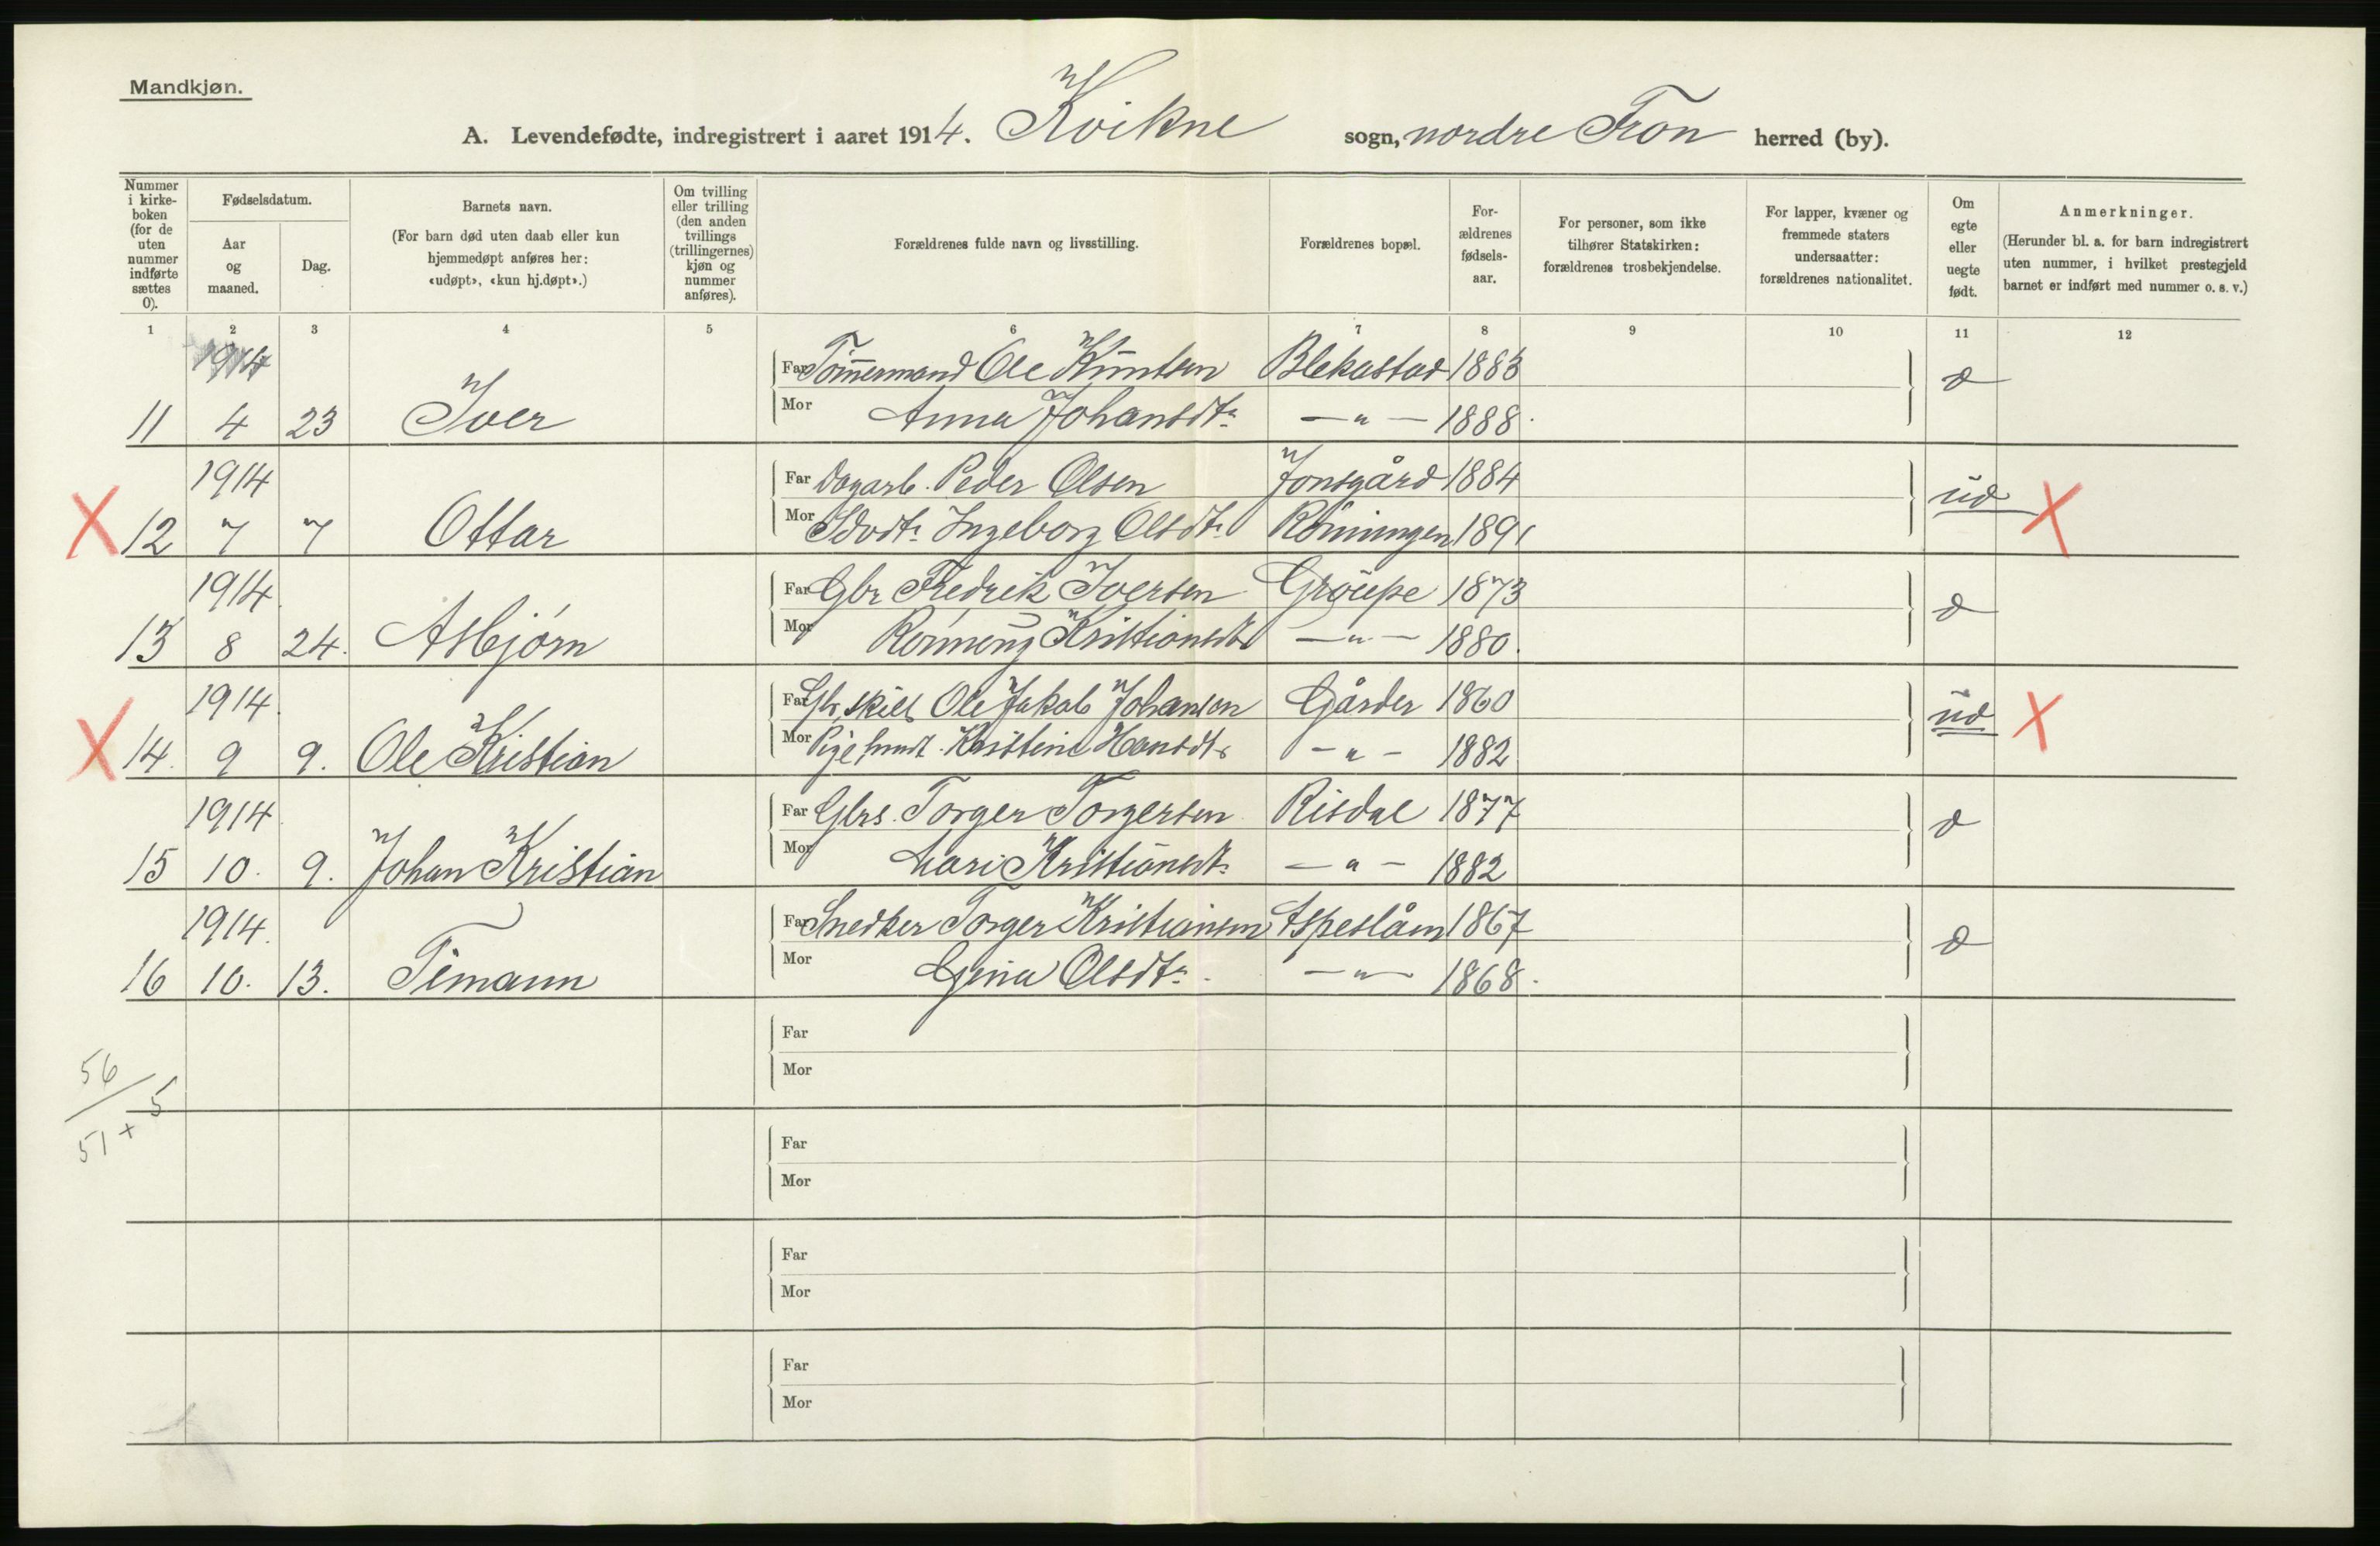 Mandkjøn.
A. Levendefødte, indregistrert i aaret 1914. Kvikne sogn, nordre Fron herred (by).
Nummer i kirkeboken (for de uten nummer indførte sættes 0).
Fødselsdatum.
Aar og maaned.
Dag.
Barnets navn.
(For barn død uten daab eller kun hjemmedøpt anføres her: «udøpt», «kun hj.døpt».)
Om tvilling eller trilling (den anden tvillings (trillingernes) kjøn og nummer anføres).
Forældrenes fulde navn og livsstilling.
Forældrenes bopæl.
Forældrenes fødselsaar.
For personer, som ikke tilhører Statskirken: forældrenes trosbekjendelse.
For lapper, kvæner og fremmede staters undersaatter: forældrenes nationalitet.
Om egte eller uegte født.
Anmerkninger.
(Herunder bl. a. for barn indregistrert uten nummer, i hvilket prestegjeld barnet er indført med nummer o. s. v.)
1 2 3 4 5 6 7 8 9 10 11 12
1914 Far Tömmermand Ole Knutsen Blekastad 1883
11 4 23 Iver Mor Anna Johansdtr. — " — 1888.
1914 Far Dagarb. Peder Olsen Jonsgård 1884
X 12 7 7 Ottar Mor Ingeborg Olsdtr. 1891 ud X
1914 Far Gbr Fredrik Iversen 1873
13 8 24. Asbjörn Mor Kristiansdtr — " — 1880.
1914. Far Ole Jakob Johansen Gårder 1860
X 14. 9 9. Ole Kristian Mor Kristine Hansdtr. - " - 1882 ud X
1914 Far Gbrs. Torger Torgersen Risdal 1877
15 10. 9. Johan Kristian Mor Mari Kristiansdtr. — " — 1882
1914. Far Snedker Torger Kristiansen 1867
16 10. 13. Timann Mor Gina Olsdtr. — " — 1868.
Far
Mor
56
5
51 +
Far
Mor
Far
Mor
Far
Mor